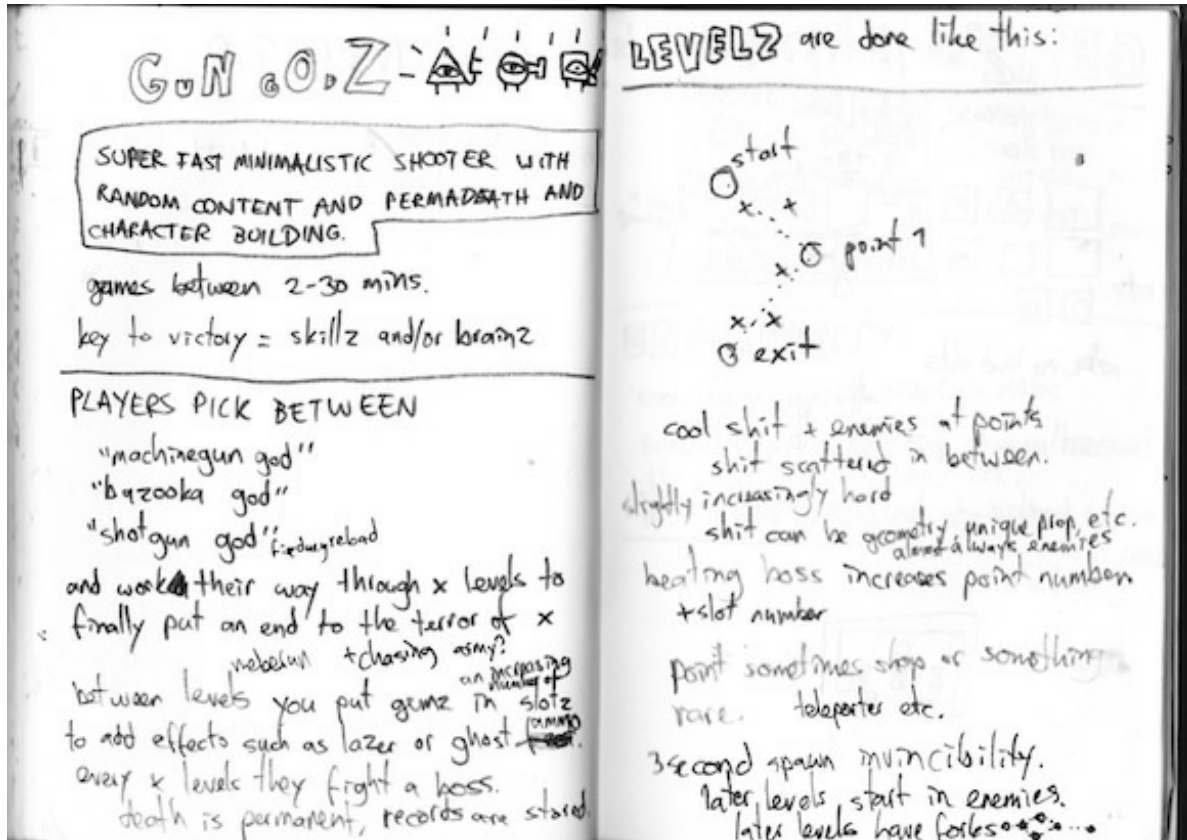 GUN GODZ
SUPER FAST MINIMALISTIC SHOOTER WITH
RANDOM CONTENT AND PERMADEATH AND
CHARACTER BUILDING.
games between 2-30 mins.
key to victory = skillz and/or brainz
PLAYERS PICK BETWEEN
"machinegun god"
"bazooka god"
"shotgun god"
and work their way through x levels to
finally put an end to the terror of x
+ chasing army?
an increasing
number of
between levels you put gemz in slotz
to add effects such as lazer or ghost ammo
every x levels they fight a boss.
death is permanent, records are stored.
LEVELZ are done like this:
start
point 1
exit
cool shit + enemies at points
shit scattered in between.
slightly increasingly hard
shit can be geometry, unique prop, etc.
almost always enemies
beating boss increases point number
+ slot number
point sometimes shop or something
rare. teleporter etc.
3 second spawn invincibility.
later levels start in enemies.
later levels have forks